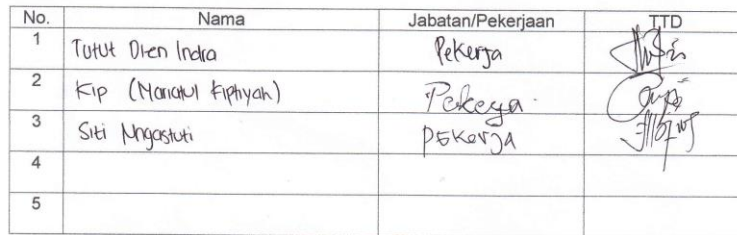 No. Nama Jabatan/Pekerjaan TTD
1 Tutut Dien Indra Pekerja
2 Kip (Mariatul Kiptiyah) Pekerja
3 Siti Pekerja
4
5